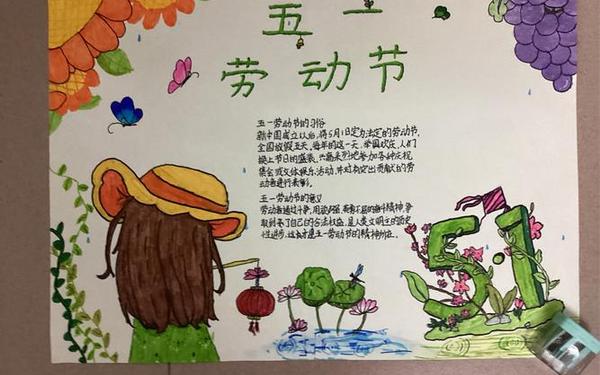 五一
劳动节
五一劳动节的习俗
新中国成立以后,将5月1日定为法定的劳动节,
全国放假五天,每年的这一天,举国欢庆,人们
换上节日的盛装,兴高采烈地参加各种庆祝
集会或文体娱乐活动,并对有突出贡献的劳
动者进行表彰。
五一劳动节的意义
劳动者通过斗争,用顽强、英勇不屈的奋斗精神,争
取到了自己的合法权益,是人类文明民主的历史
性进步,这才是五一劳动节的精神所在。
5.1